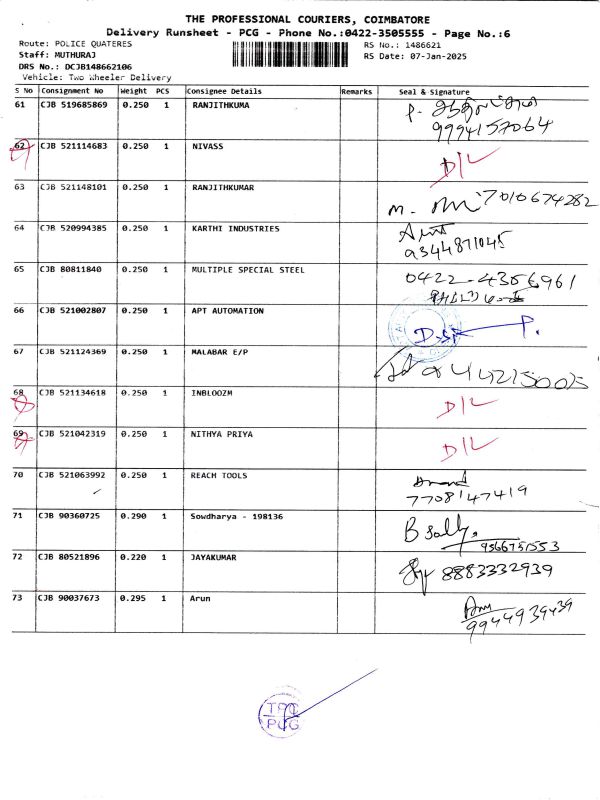 THE PROFESSIONAL COURIERS, COIMBATORE
Delivery Runsheet - PCG - Phone No.:0422-3505555 - Page No.:6
Route: POLICE QUATERES RS No.: 1486621
Staff: MUTHURAJ RS Date: 07-Jan-2025
DRS No.: DCJB148662106
Vehicle: Two Wheeler Delivery
S No Consignment No Weight PCS Consignee Details Remarks Seal & Signature
61 CJB 519685869 0.250 1 RANJITHKUMA
9994157064
62 CJB 521114683 0.250 1 NIVASS D/L
63 CJB 521148101 0.250 1 RANJITHKUMAR 7010674282
64 CJB 520994385 0.250 1 KARTHI INDUSTRIES
9344871045
65 CJB 80811840 0.250 1 MULTIPLE SPECIAL STEEL 0422-4356961
66 CJB 521002807 0.250 1 APT AUTOMATION
67 CJB 521124369 0.250 1 MALABAR E/P
68 CJB 521134618 0.250 1 INBLOOZM D/L
69 CJB 521042319 0.250 1 NITHYA PRIYA D/L
70 CJB 521063992 0.250 1 REACH TOOLS
7708147419
71 CJB 90360725 0.290 1 Sowdharya - 198136
9566751553
72 CJB 80521896 0.220 1 JAYAKUMAR 8883332939
73 CJB 90037673 0.295 1 Arun
9944939439
TPC
PCG